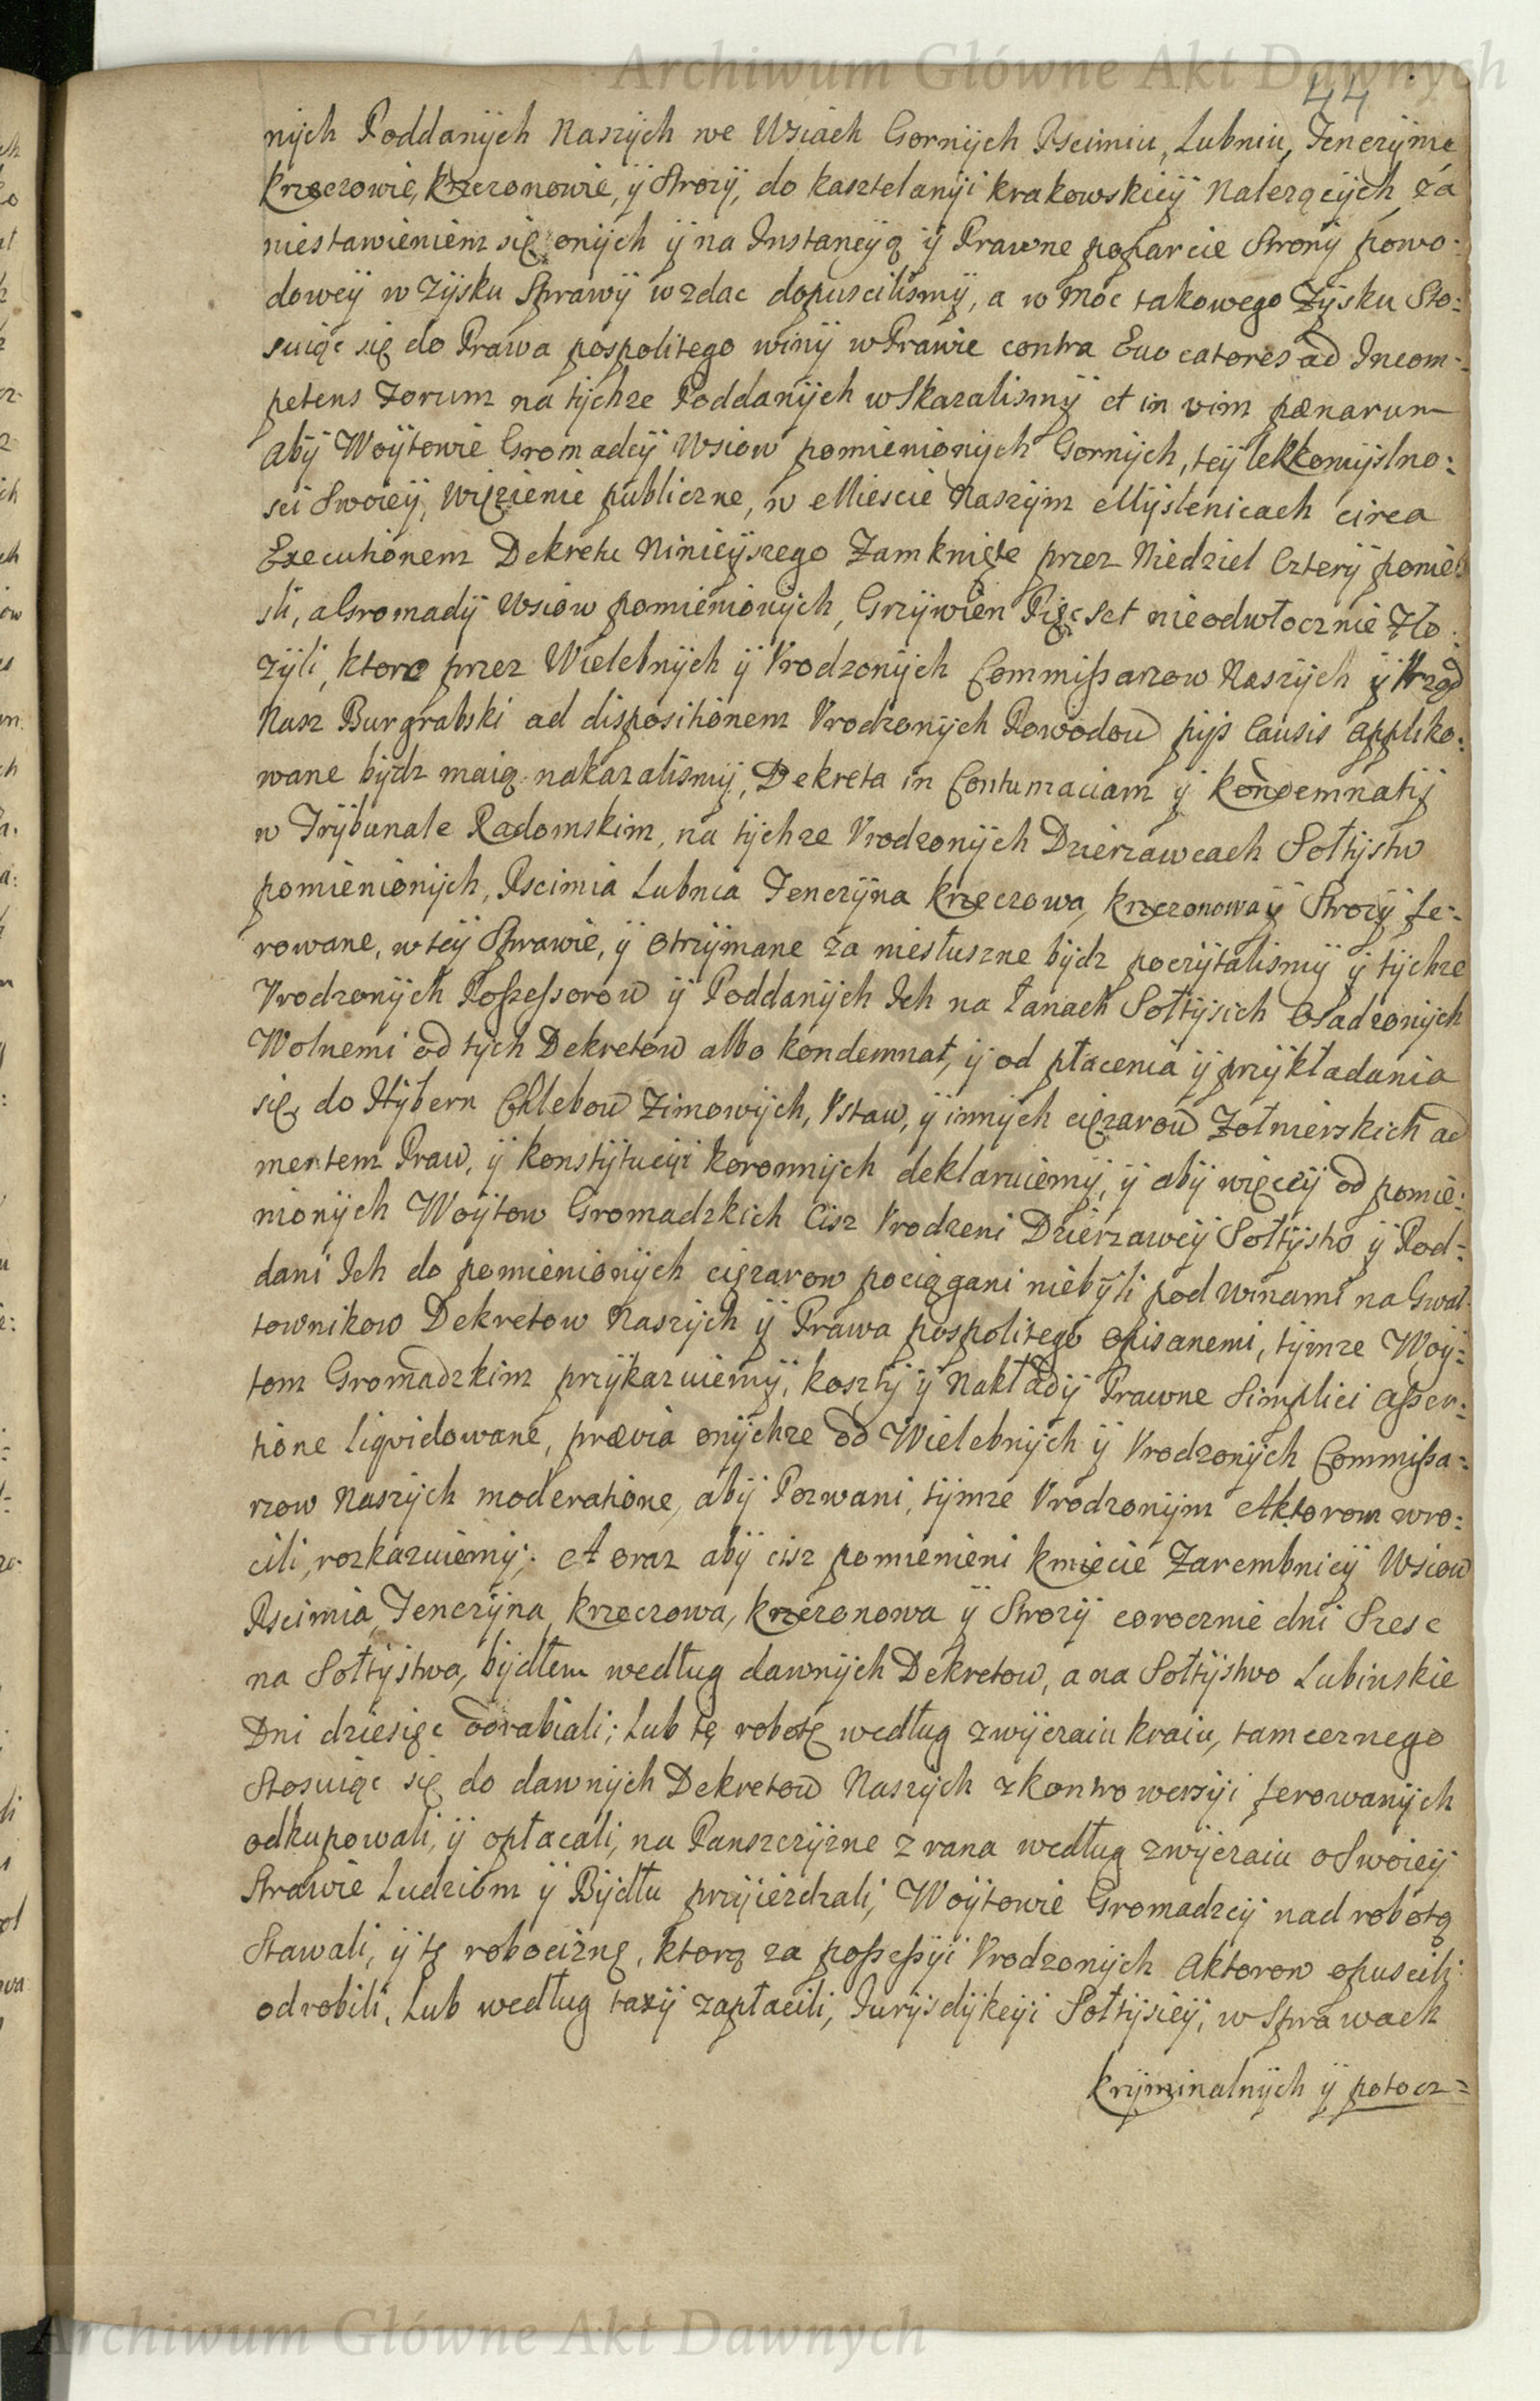 Archiwum Główne Akt Dawnych
44
nÿch Poddanÿch Naszÿch we Wsiach Gornÿch Pscimiu, Lubniu, Tenczÿnie
Krzeczowie, Krzczonowie, ÿ Strozÿ, do Kasztelanÿi Krakowskieÿ Nalezącÿch, za
niestawieniem się onÿch ÿ na Instancÿą ÿ Prawne poparcie Stronÿ powo:
doweÿ w Zÿsku Sprawÿ wzdac dopuscilismÿ, a w moc takowego Zÿsku Sto:
suiąc się do Prawa pospolitego winÿ w Prawie contra Euocatores ad Incom:
petens Forum na tÿchze Poddanÿch wskazalismÿ et in vim pænarum
abÿ Woÿtowie Gromadcÿ Wsiow pomienionÿch Gornÿch, teÿ lekkomÿslno:
sci Swoieÿ, Więzienie publiczne, w Miescie Naszÿm Mÿslenicach circa
Executionem Dekretu Ninieÿszego Zamknięte przez Niedziel Czterÿ ponie:
sli, a Gromadÿ Wsiow pomienionÿch, Grzÿwien Pięcset nieodwłocznie Zło:
zÿli, ktore przez Wielebnÿch ÿ Vrodzonÿch Commißarzow Naszÿch ÿ Vrząd
Nasz Burgrabski ad dispositionem Vrodzonÿch Powodow pijs Causis appliko:
wane bÿdz maią nakazalismÿ, Dekreta in Contumaciam ÿ Kondemnatÿ
w Trÿbunale Radomskim, na tÿchze Vrodzonÿch Dzierzawcach Sołtÿstw
pomienionÿch, Pscimia Lubnia Tenczÿna Krzeczowa, Krzczonowa ÿ Strozÿ fe:
rowane, w teÿ Sprawie, ÿ otrzÿmane za niesłuszne bÿdz poczÿtalismÿ ÿ tÿchze
Vrodzonÿch Poßeßorow ÿ Poddanÿch Ich na Łanach Sołtÿsich Osadzonÿch
Wolnemi od tÿch Dekretow albo Kondemnat, ÿ od płacenia ÿ przÿkładania
się do Hÿbern Chlebow Zimowÿch, Vstaw, ÿ innÿch cięzarow Zołnierskich ad
mentem Praw, ÿ Konstÿtucÿi Koronnÿch deklaruiemÿ, ÿ abÿ więceÿ od pomie:
nionÿch Woÿtow Gromadzkich Cisz Vrodzeni Dzierzawcÿ Sołtÿstw ÿ Pod:
dani Ich do pomienionÿch cięzarow pociągani niebÿli pod winami na Gwał:
townikow Dekretow Naszÿch ÿ Prawa pospolitego opisanemi, tÿmze Woÿ:
tom Gromadzkim przÿkazuiemÿ, Kosztÿ ÿ Nakładÿ Prawne Simplici aßer:
tione liqvidowane, prævia onÿchze od Wielebnÿch ÿ Vrodzonÿch Commißa:
rzow Naszÿch moderatione, abÿ Pozwani, tÿmze Vrodzonÿm Aktorom wro:
cili, rozkazuiemÿ. A oraz abÿ cisz pomienieni Kmiecie Zarembnicÿ Wsiow
Pscimia, Tenczÿna, Krzeczowa, Krzczonowa ÿ Strozÿ corocznie dni Szesc
na Sołtÿstwa, bÿdłem według dawnÿch Dekretow, a na Sołtÿstwo Lubinskie
Dni dziesięc odrabiali; Lub tę robotę według zwÿczaiu kraiu, tamecznego
Stosuiąc się do dawnÿch Dekretow Naszÿch z kontrowersÿi ferowanÿch
odkupowali, ÿ opłacali, na Panszczÿzne z rana według zwÿczaiu o Swoieÿ
Strawie Ludziom ÿ Bÿdłu przÿiezdzali, Woÿtowie Gromadzcÿ nad robotą
Stawali, ÿ tę robociznę, ktorą za poßeßÿi Vrodzonÿch Aktorow opuscili
odrobili, Lub według taxÿ zapłacili, Jurÿsdÿkcÿi Sołtÿsieÿ, w Sprawach
Krÿminalnÿch ÿ potocz=
Archiwum Główne Akt Dawnych